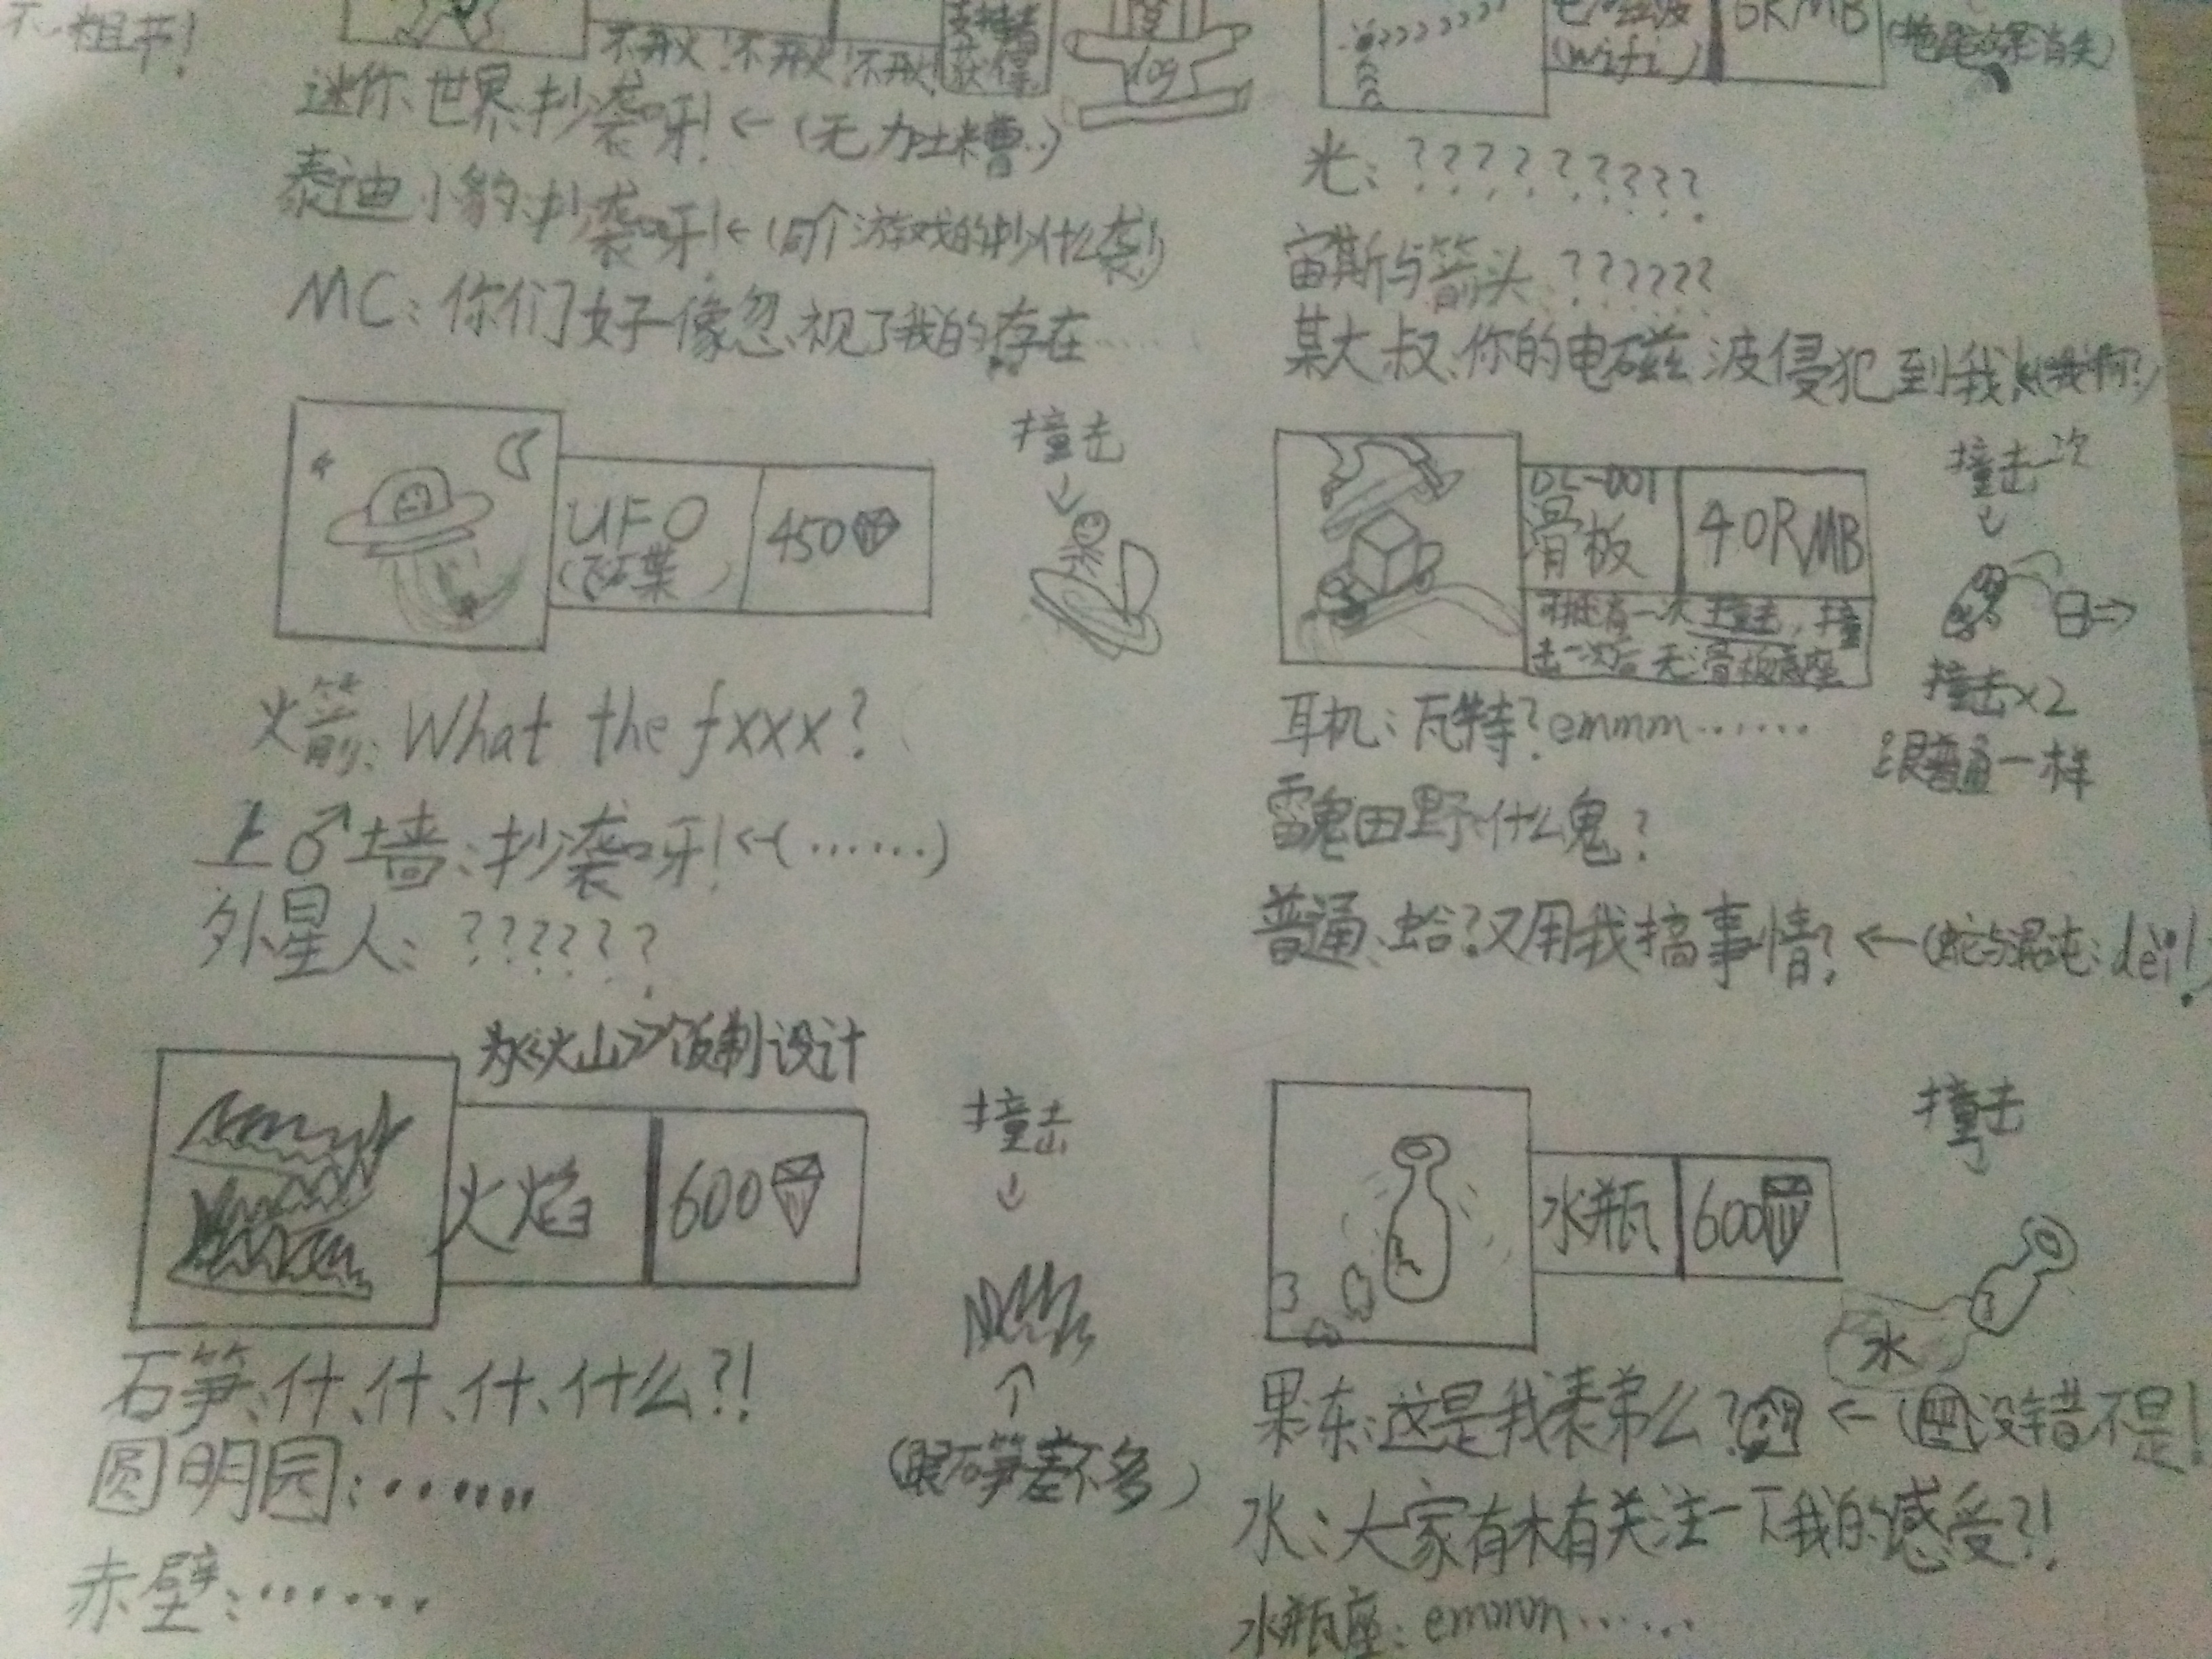 不粗节!
不开火!不开火!不开火!
支持者
获得
迷你世界:抄袭呀!←(无力吐糟..)
泰迪小豹:抄袭呀!←(同个游戏的抄什么袭!)
MC:你们好像忽视了我的存在……
撞击
UFO
(飞碟)
450
火箭:What the fxxx?
上♂墙:抄袭呀!←(……)
外星人:??????
为《火山》饭制设计
撞击
火焰
600
石笋:什、什、什、什么?!
(跟石笋差不多)
圆明园:……
赤壁:……
(wifi)
6RMB
光:?????????
宙斯与箭头:??????
某大叔:你的电磁波侵犯到我
撞击一次
DL-001
滑板
40RMB
可抵消一次撞击,撞
击一次后无滑板底座
撞击×2
跟普通一样
耳机:瓦特?emmm……
雷鬼田野:什么鬼?
普通:蛤?又用我搞事情?←(蛇与混沌:dei!
撞击
水瓶
600
水
果冻:这是我表弟么?←(没错不是!
水:大家有木有关注一下我的感受?!
水瓶座:emmm……